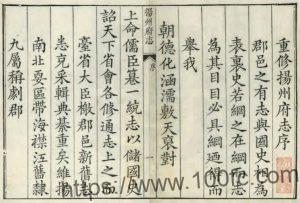 重修揚州府志序
郡邑之有志與國史相為
表裏史若綱之在綱志
為其目目必具綱迺備而
舉我
朝德化涵濡敷天裒對
揚州府志 序 一
上命儒臣纂一統志以儲國史
詔天下省會各修通志上之
臺省大臣檄郡邑新舊
志克采輯典綦重矣維揚
南北要區帶海襟江舊隸
九屬稱劇郡